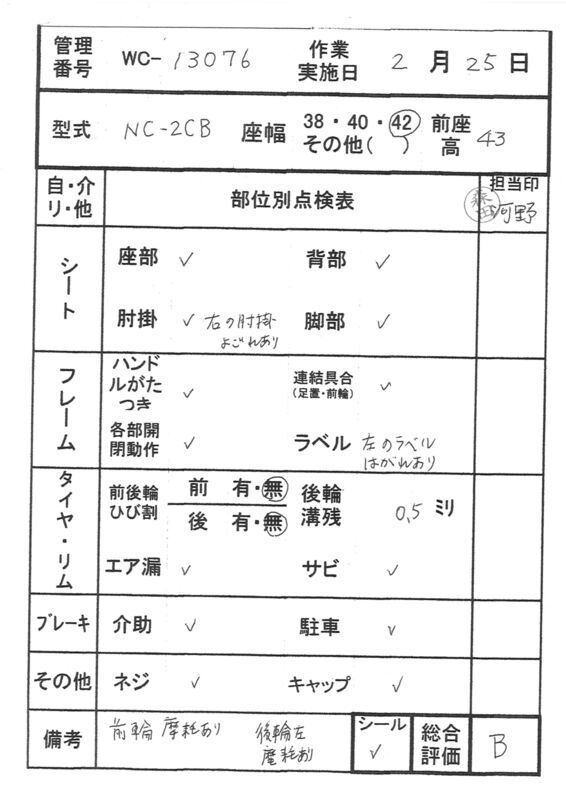 管理番号 WC-13076 作業実施日 2月25日
型式 NC-2CB 座幅 38・40・42 その他( ) 前座高 43
自・介リ・他 部位別点検表 担当印
森田 河野
シート 座部 ✓ 背部 ✓
肘掛 ✓ 右の肘掛 よごれあり 脚部 ✓
フレーム ハンドルがたつき ✓ 連結具合(足置・前輪) ✓
各部開閉動作 ✓ ラベル 左のラベル はがれあり
タイヤ・リム 前後輪ひび割 前 有・無 後輪溝残 0.5 ミリ
後 有・無
エア漏 ✓ サビ ✓
ブレーキ 介助 ✓ 駐車 ✓
その他 ネジ ✓ キャップ ✓
備考 前輪 摩耗あり 後輪左 摩耗あり シール ✓ 総合評価 B